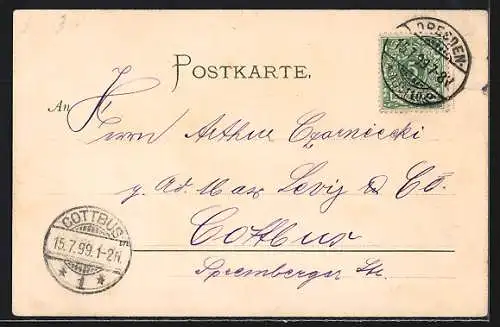 3
POSTKARTE.
DRESDEN
15.7.99.1-2N.
An
Herrn Arthur Czarniecki
p. Ad. Max Levig & Co.
Cottbus
Spremberger Str.
COTTBUS
15.7.99.1-2N.
* 1 *